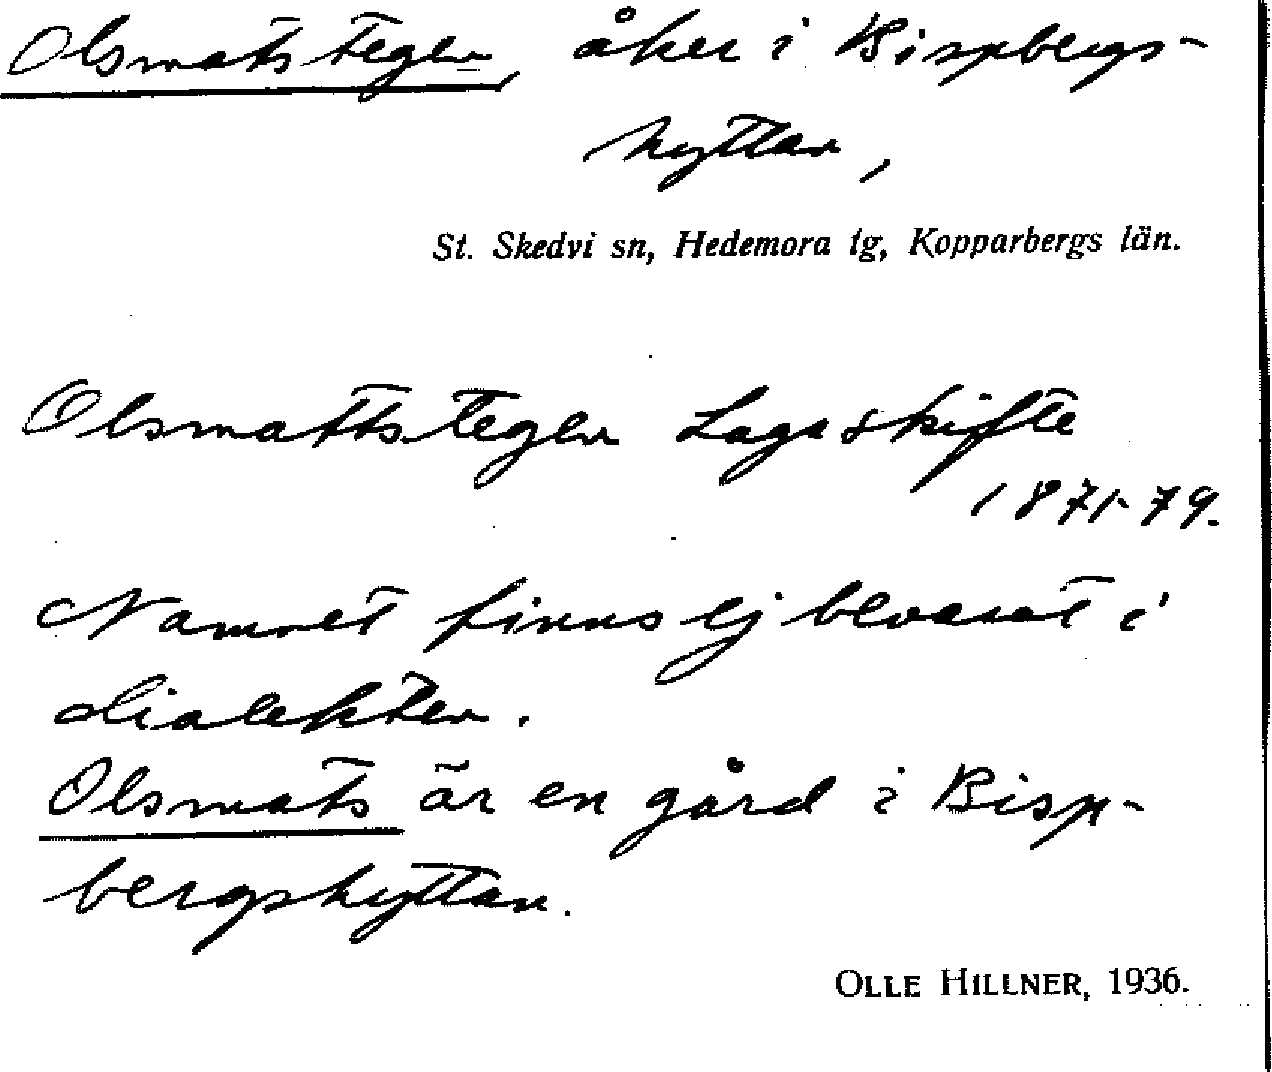 Olsmatstegen, åker i Bispbergs-
hyttan,
St. Skedvi sn, Hedemora tg, Kopparbergs län.
Olsmattstegen Laga skifte
1871-79.
Namnet finns ej bevarat i
dialekten.
Olsmats är en gård i Bisp-
bergshyttan.
OLLE HILLNER, 1936.